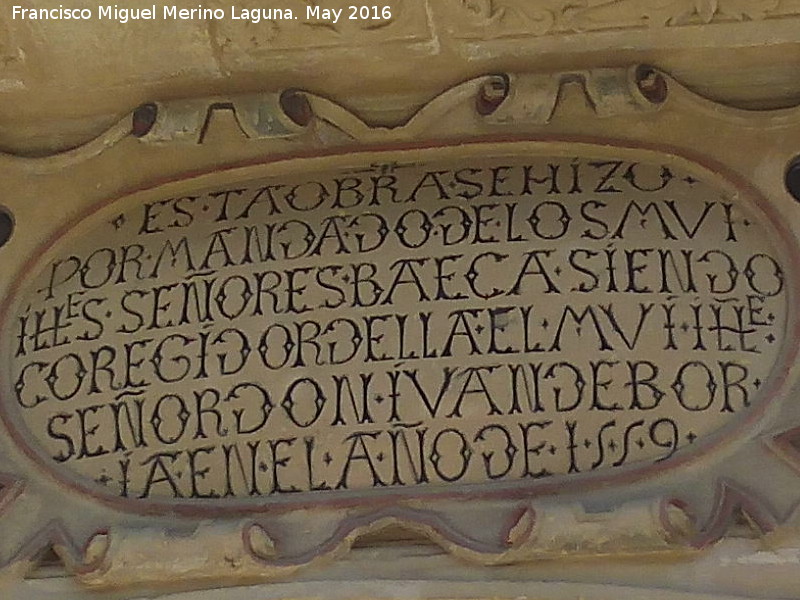 Francisco Miguel Merino Laguna. May 2016
ES·TAOBRA·SEHIZO·
POR·MANDADO·DE·LOS MVI·
ILLES·SEÑORES·BAEÇA·SIENDO
COREGIDORDELLA·EL·MVI·ILLE·
SEÑORDON·IVANDEBOR·
·IA·EN·EL·AÑO·DE·1·5·5·9·